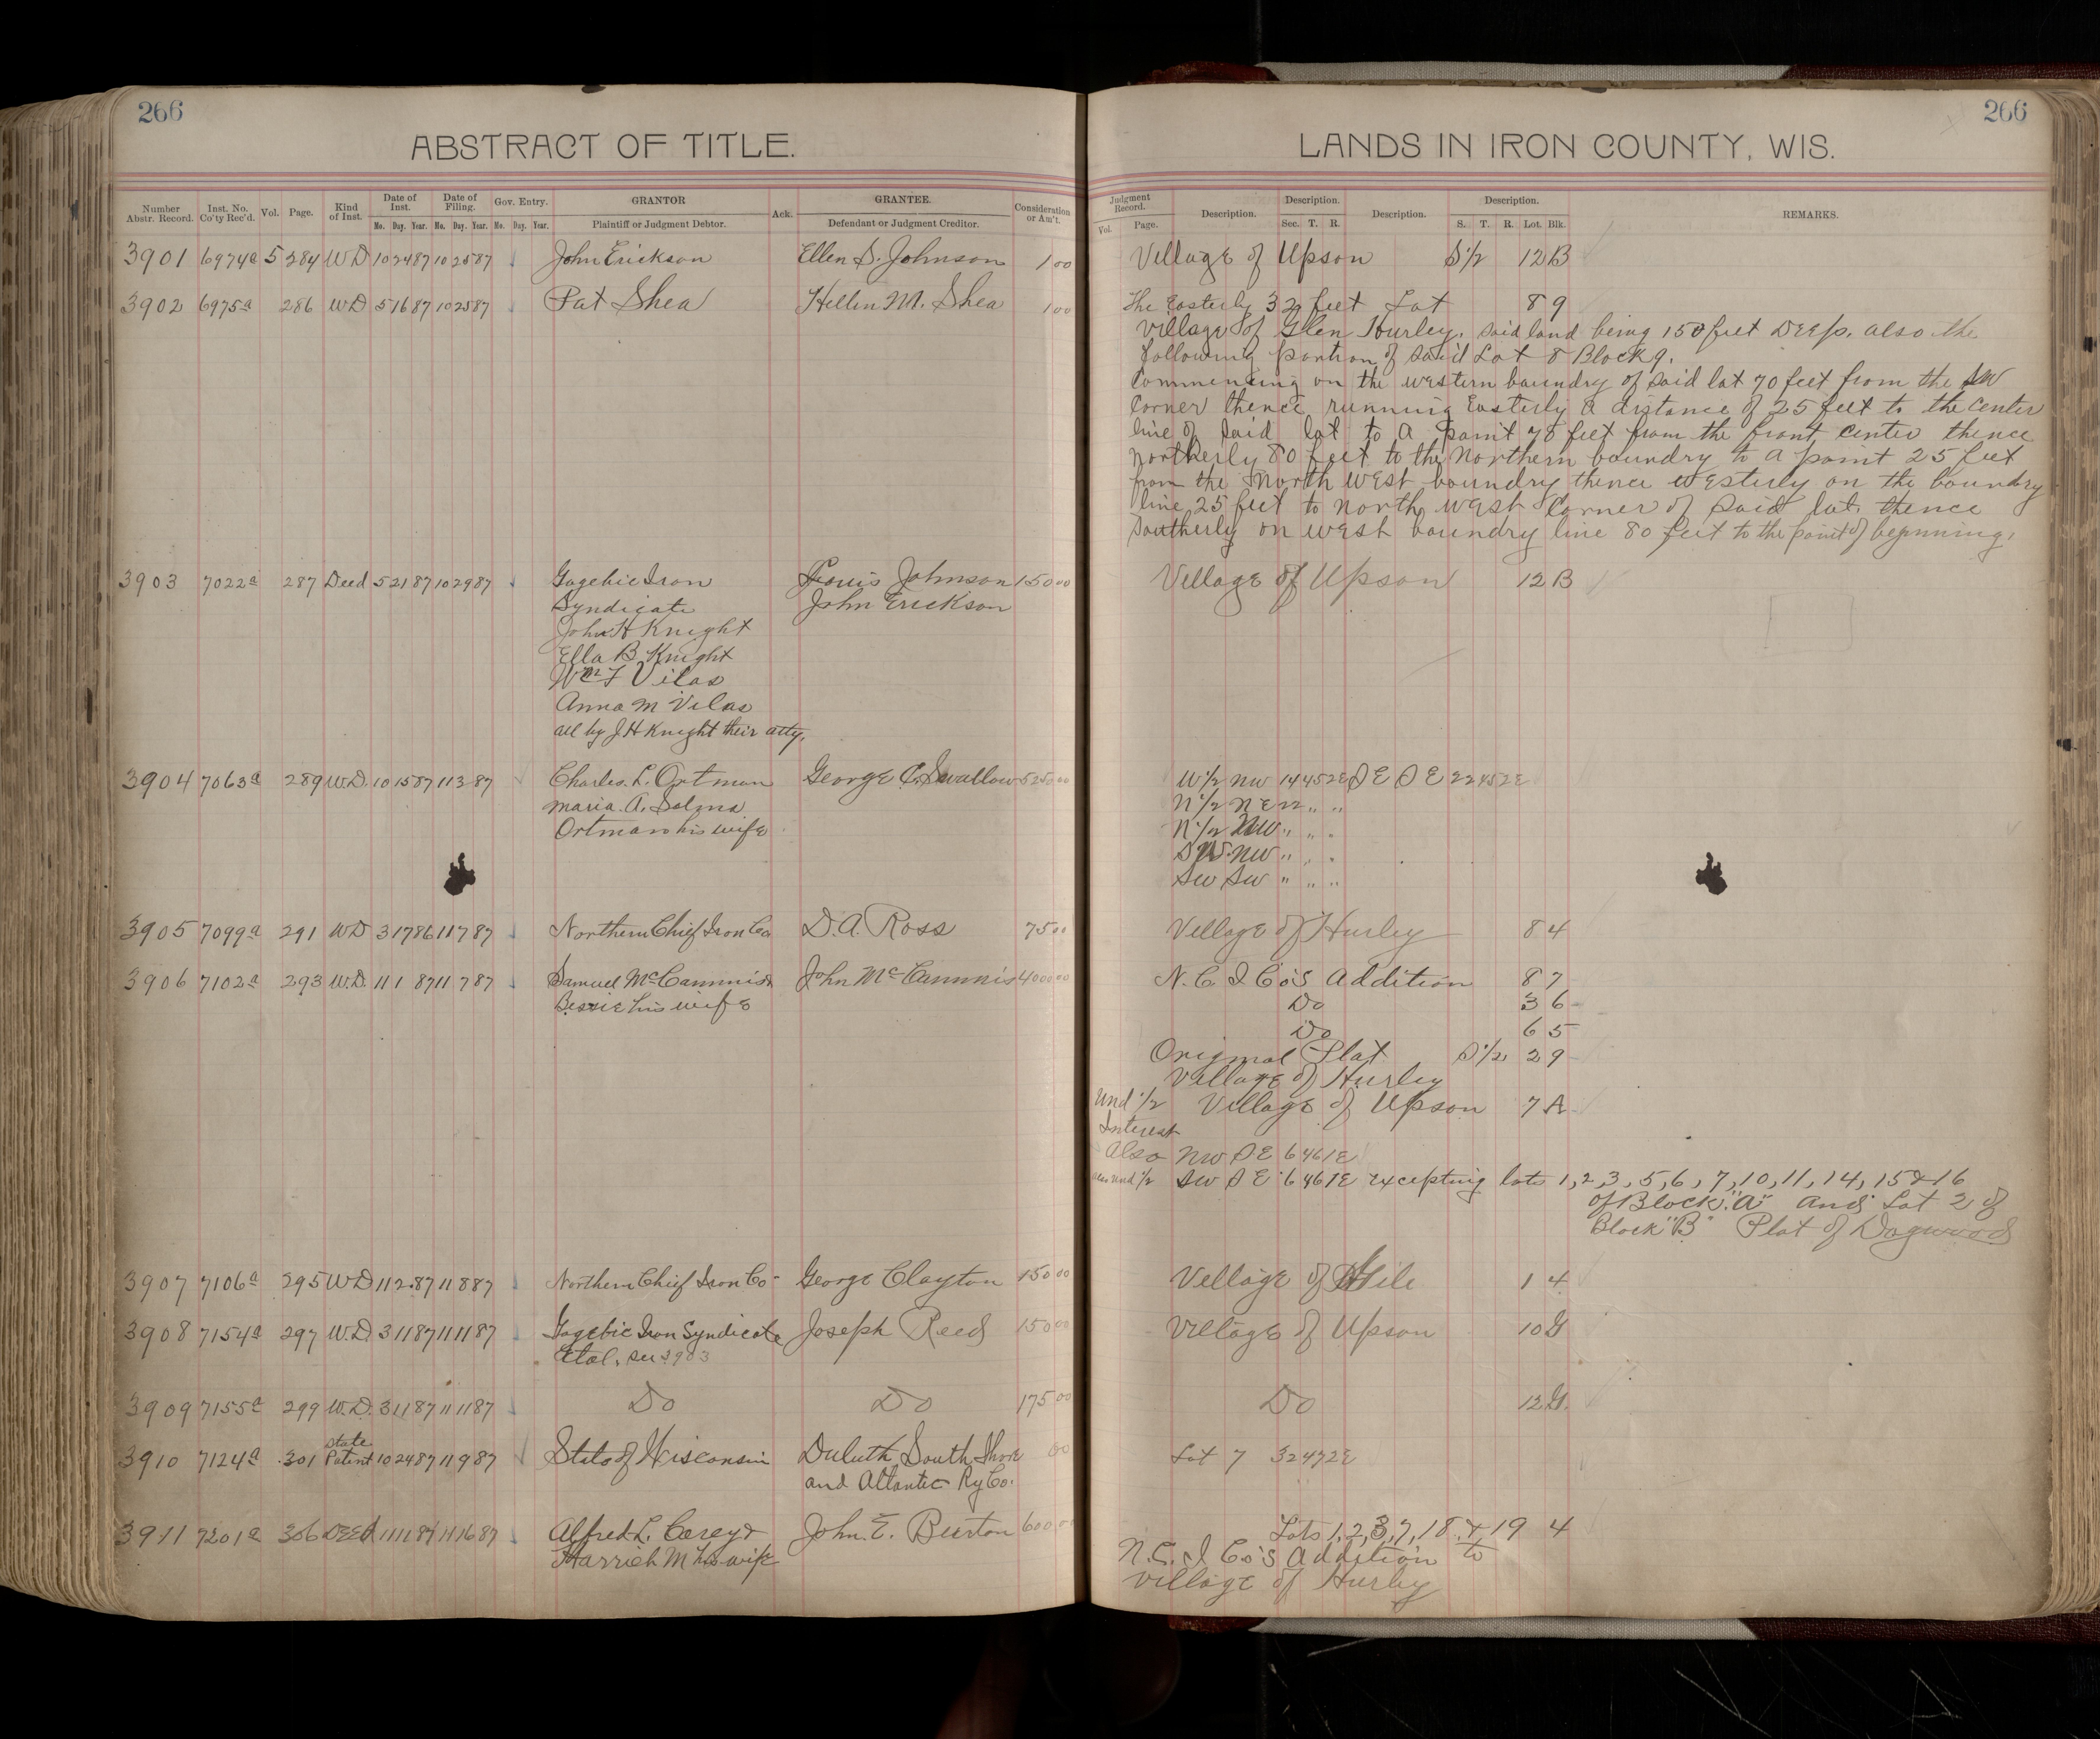 266
ABSTRACT OF TITLE.
Number Abstr. Record. Inst. No. Co'ty Rec'd. Vol. Page. Kind of Inst. Date of Inst. Date of Filing. Gov. Entry. GRANTOR Ack. GRANTEE. Consideration or Am't.
Mo. Day. Year. Mo. Day. Year. Mo. Day. Year. Plaintiff or Judgment Debtor. Defendant or Judgment Creditor.
3901 6974a 5 284 WD 10 24 87 10 25 87 John Erickson Ellen S. Johnson 1 00
3902 6975a 286 WD 5 16 87 10 25 87 Pat Shea Hellen M. Shea 1 00
3903 7022a 287 Deed 5 21 87 10 29 87 Gogebic Iron Louis Johnson 150 00
Syndicate John Erickson
John H Knight
Ella B Knight
Wm F Vilas
Anna M Vilas
all by J H Knight their atty,
3904 7063a 289 W.D. 10 15 87 11 3 87 Charles. L. Ortman George C. Swallow 5250 00
Maria. A. Selma
Ortman his wife
3905 7099a 291 WD 3 17 86 11 7 87 Northern Chief Iron Co D. A. Ross 75 00
3906 7102a 293 W.D. 11 1 87 11 7 87 Samuel McCammis & John McCammis 4000 00
Bessie his wife
3907 7106a 295 WD 11 2 87 11 8 87 Northern Chief Iron Co George Clayton 150 00
3908 7154a 297 W.D. 3 11 87 11 11 87 Gogebic Iron Syndicate Joseph Reed 150 00
Etal. see 3903
3909 7155a 299 W.D. 3 11 87 11 11 87 Do Do 175 00
State
3910 7124a 301 Patent 10 24 87 11 9 87 State of Wisconsin Duluth South Shore 00
and Atlantic Ry Co.
3911 7201a 306 DEEd 11 11 87 11 16 87 Alfred L. Corey & John. E. Burton 600 00
Harriet M his wife
266
LANDS IN IRON COUNTY, WIS.
Judgment Record. Description. Description. Description. Description. REMARKS.
Vol. Page. Sec. T. R. S. T. R. Lot. Blk.
Village of Upson S 1/2 12 B
The Easterly 32 feet Lot 8 9
Village of Glen Hurley. said land being 150 feet Deep. also the
following portion of said Lot 8 Block 9.
Commencing on the western boundry of said lot 70 feet from the SW
Corner thence running Easterly a distance of 25 feet to the center
line of said lot to a point 70 feet from the front center thence
Northerly 80 feet to the Northern boundry to a point 25 feet
from the North West boundry thence westerly on the boundry
line 25 feet to North west Corner of said lot thence
Southerly on west boundry line 80 feet to the point of beginning.
Village of Upson 12 B
W 1/2 NW 14 45 2E S E S E 22 45 2E
N 1/2 N E 22 " "
N 1/2 NW " " "
SW. NW " " "
SW SW " " "
Village of Hurley 8 4
N. C I Co's Addition 8 7
Do 3 6
Do 6 5
Original Plat S 1/2 2 9
Village of Hurley
Und 1/2 Village of Upson 7 A
Interest
Also NW S E 6 46 1E
also und 1/2 SW S E 6 46 1E excepting lots 1, 2, 3, 5, 6, 7, 10, 11, 14, 15 & 16
of Block "A" and Lot 2 of
Block "B" Plat of Dogwood
Village of Gile 1 4
Village of Upson 10 G
Do 12 G.
Lot 7 32 47 2E
Lots 1, 2, 3, 7, 18 & 19 4
N. C. I Co's Addition to
Village of Hurley